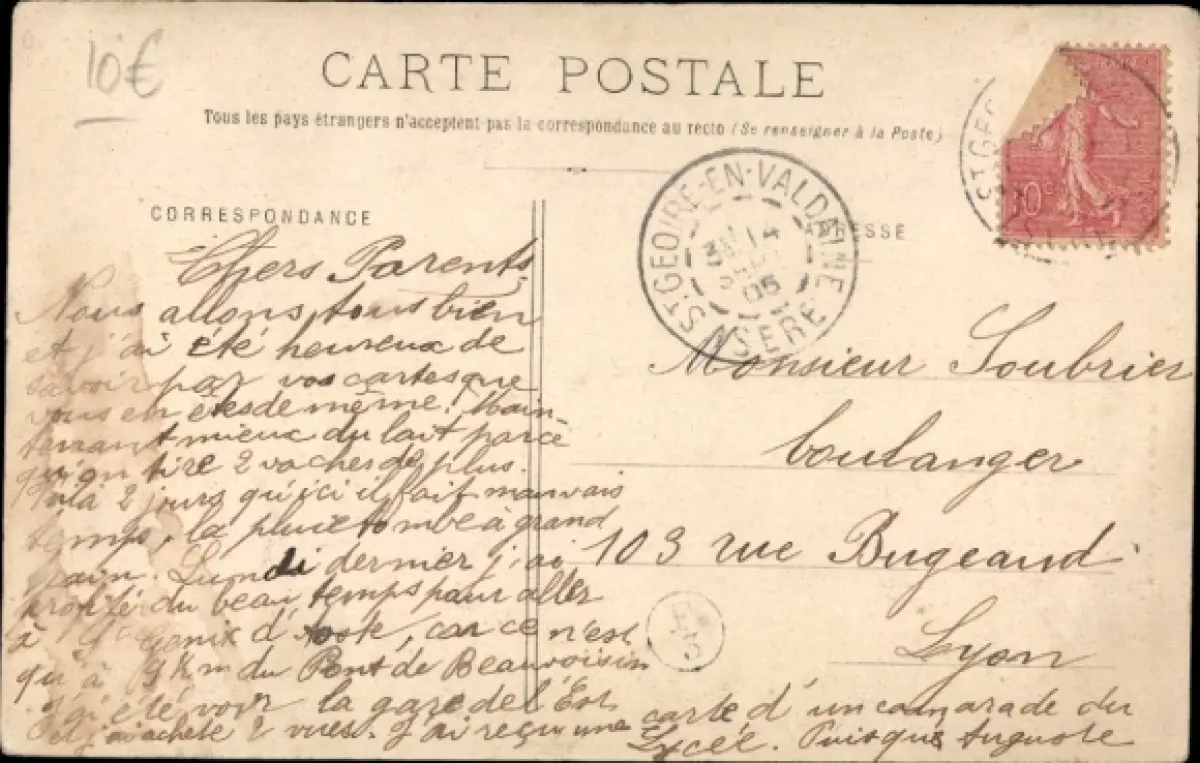 10€
CARTE POSTALE
Tous les pays étrangers n'acceptent pas la correspondance au recto (Se renseigner à la Poste)
CORRESPONDANCE
ST GEOIRE-EN-VALDAINE
14
05
ISÈRE
RESSE
ST GEO
10c
Chers Parents.
Nous allons tous bien
et j'ai été heureux de
savoir par vos cartes que
vous en êtes de même. Main-
tenant mieux du lait parce
qu'on tire 2 vaches de plus.
Voilà 2 jours qu'ici il fait mauvais
temps, la pluie tombe à grand
grain. Lundi dernier j'ai
profité du beau temps pour aller
à St Genix d'Aoste, car ce n'est
qu'à 9 km du Pont de Beauvoisin
J'ai été voir la gare de l'Est
et j'ai acheté 2 vues. J'ai reçu une carte d'un camarade du
Lycée. Puisque Auguste
Monsieur Soubrier
boulanger
103 rue Bugeaud
Lyon